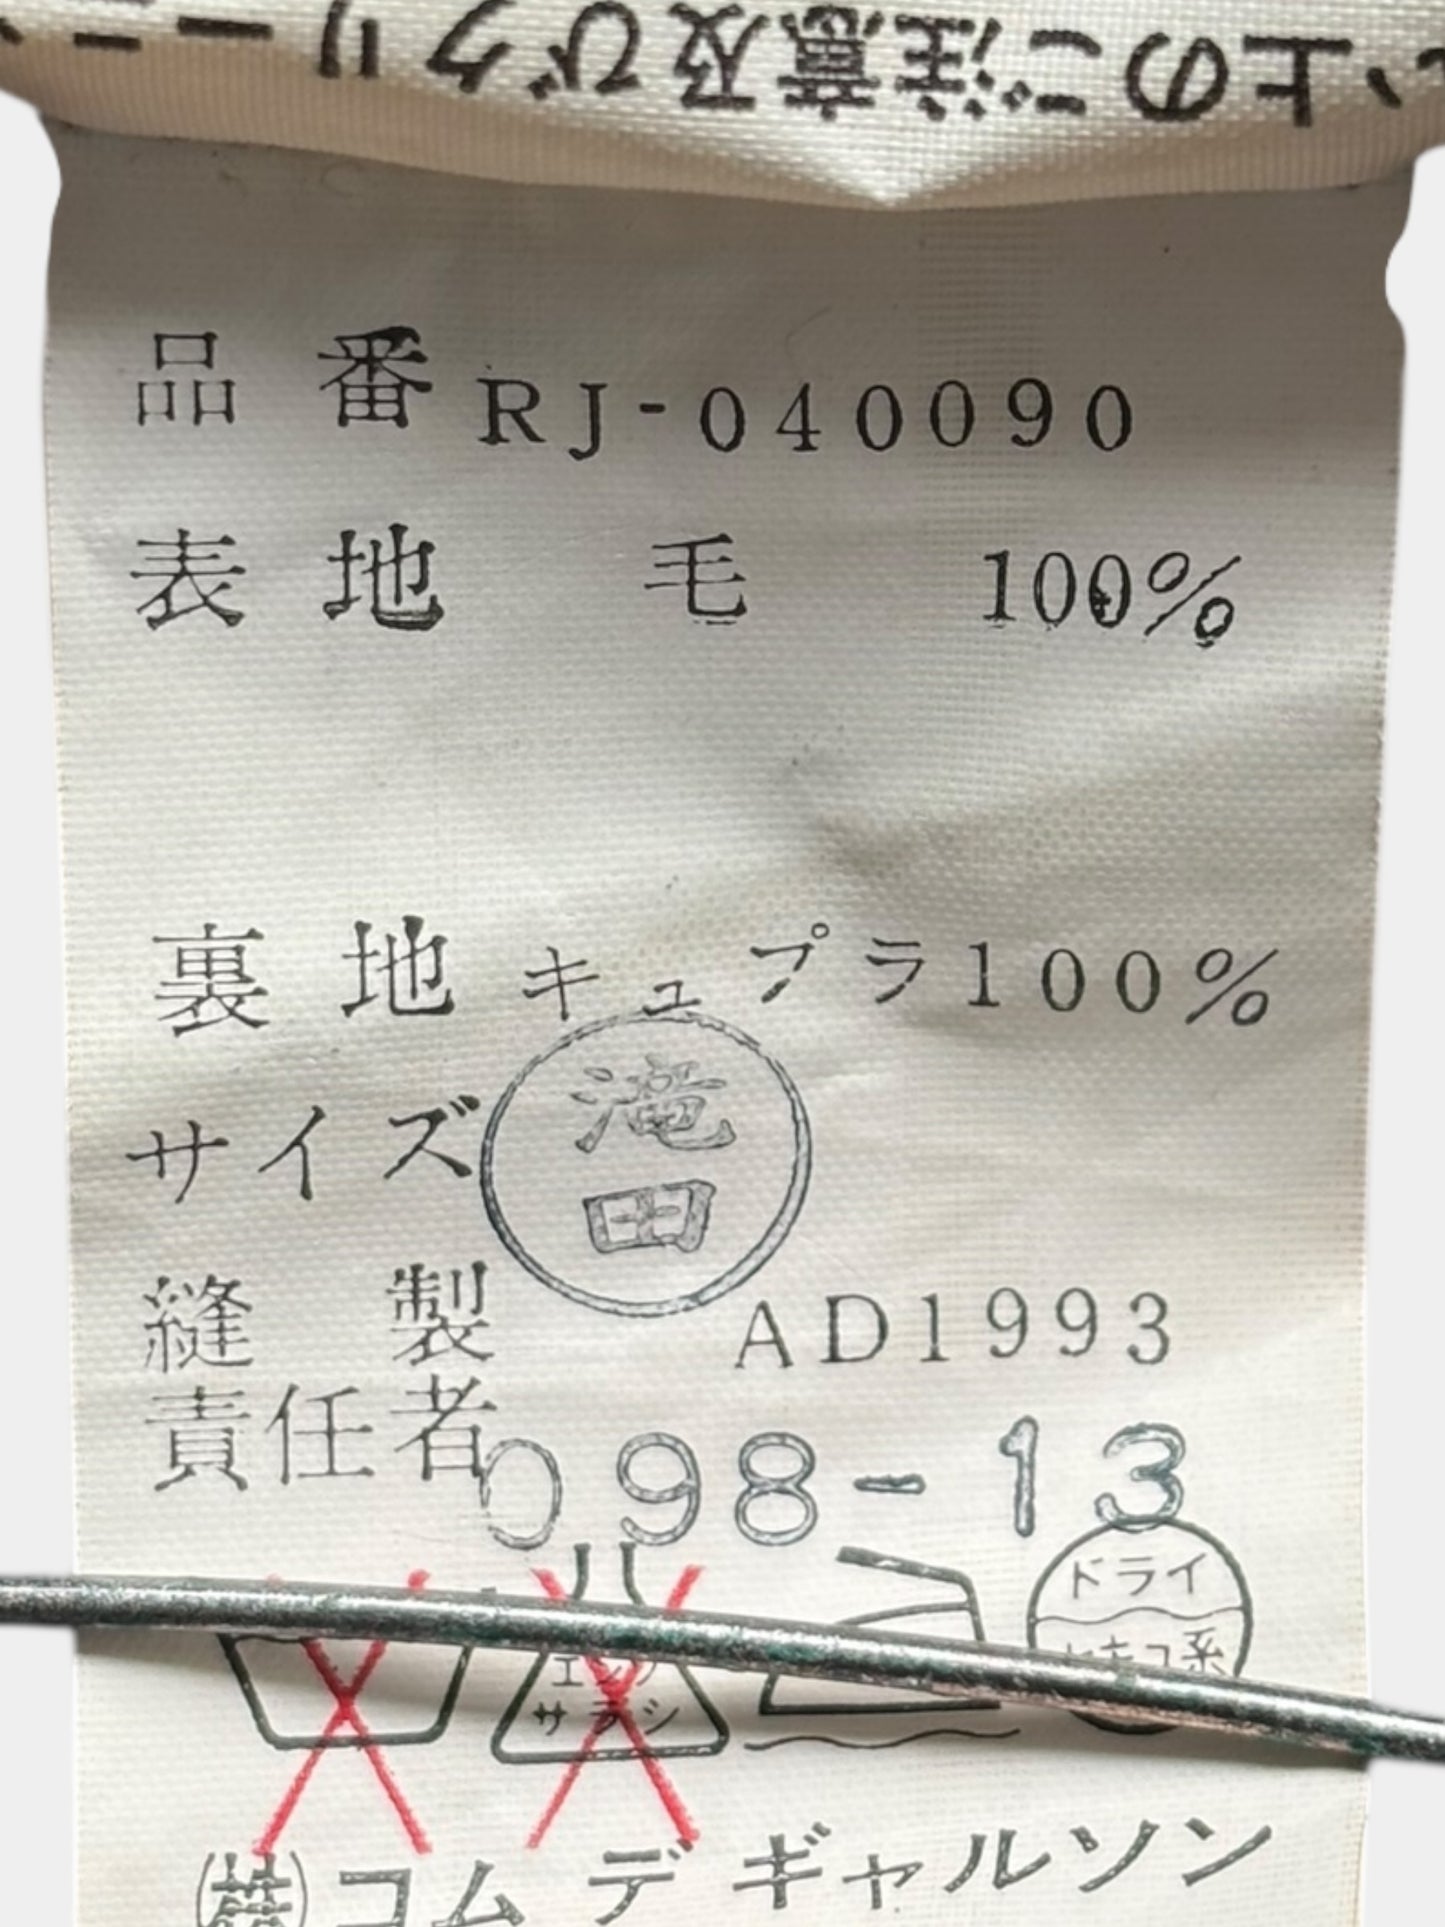 い上のご注意及びクリーニン
品番 RJ-040090
表地 毛 100%
裏地 キュプラ100%
サイズ
滝田
縫製
責任者
AD1993
098-13
エンソ
サラシ
ドライ
セキユ系
㈱コムデギャルソン